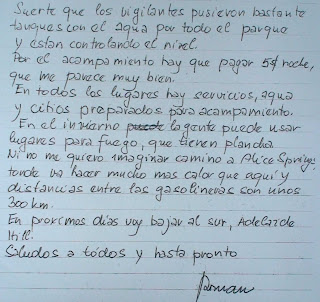 Suerte que los vigilantes pusieron bastante
tanques con el agua por todo el parque
y estan controlando el nivel.
Por el acampamiento hay que pagar 5$ noche,
que me parece muy bien.
En todos los lugares hay servicios, agua
y citios preparados para acampamiento.
En el invierno puede la gente puede usar
lugares para fuego, que tienen plancha.
Ni no me quiero imaginar camino a Alice Springs,
tonde va hacer mucho mas calor que aquí y
distancias entre las gasolineras son unos
300 km.
En proximos dias voy bajar al sur, Adelaide
Hill.
Saludos a tódos y hasta pronto
Roman